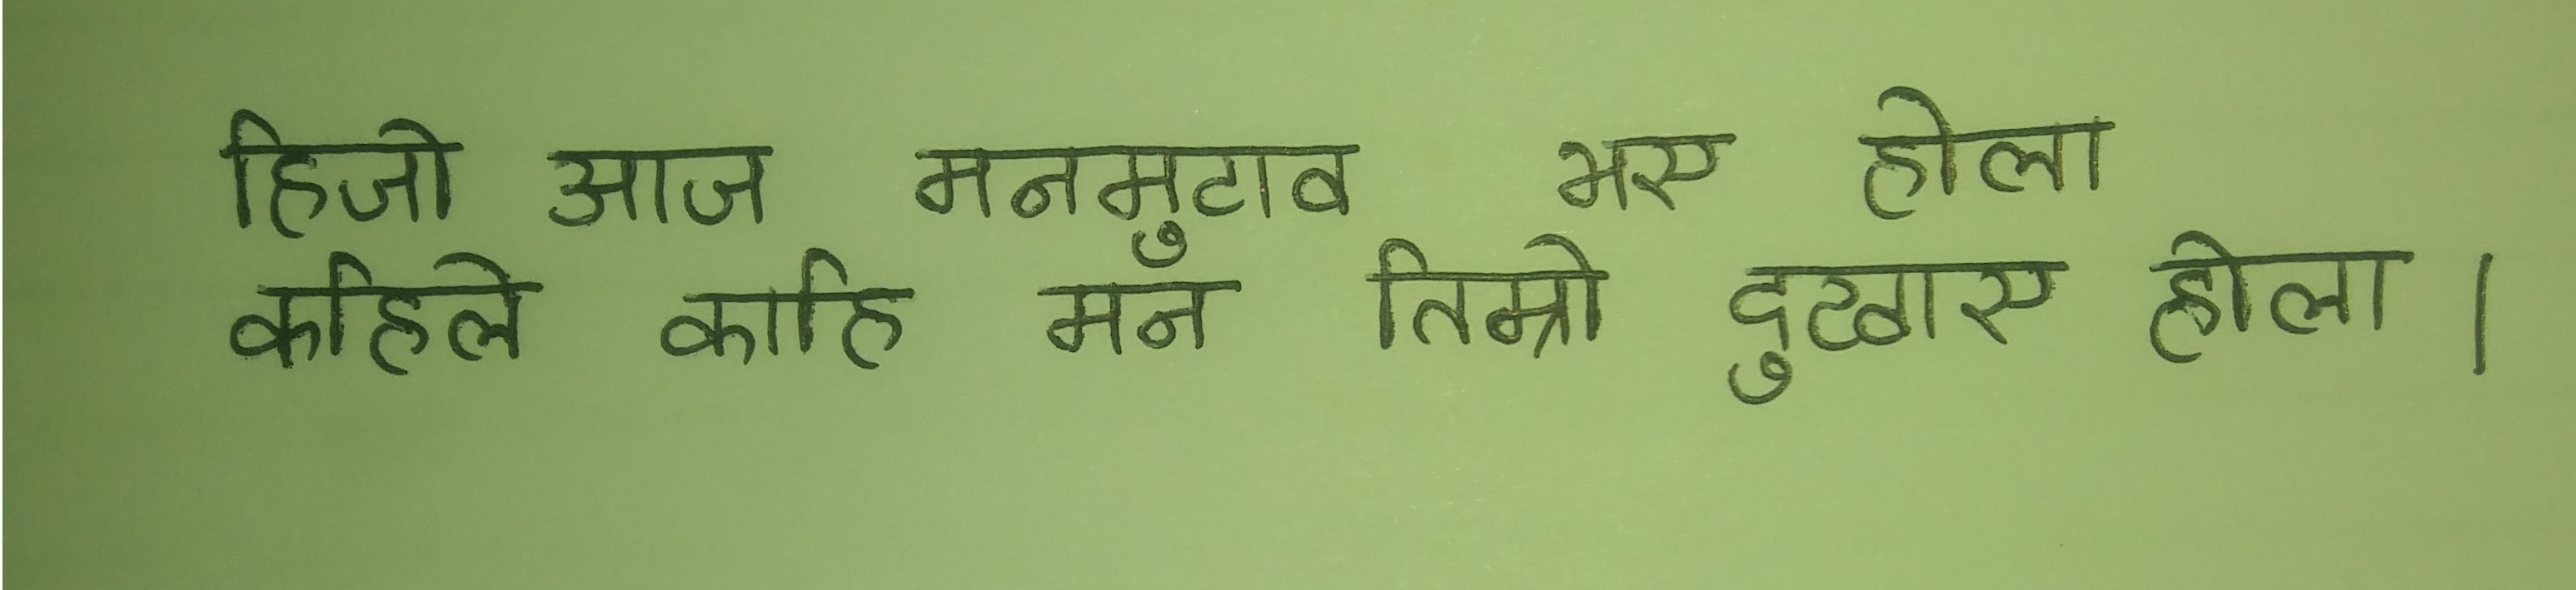 हिजो आज मनमुटाव भए होला
कहिले काहि मन तिम्रो दुखाए होला ।